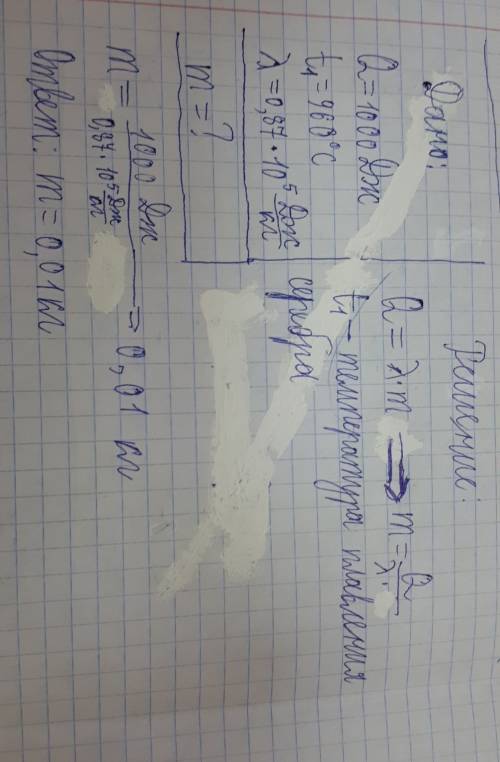 Дано:
Q = 1000 Дж
t₁ = 960°C
λ = 0,87 · 10⁵ Дж/кг
m = ?
Решение:
Q = λ · m ⟹ m = Q/λ·
t₁ – температура плавления
серебра
m = 1000 Дж / 0,87 · 10⁵ Дж/кг = 0,01 кг
Ответ: m = 0,01 кг